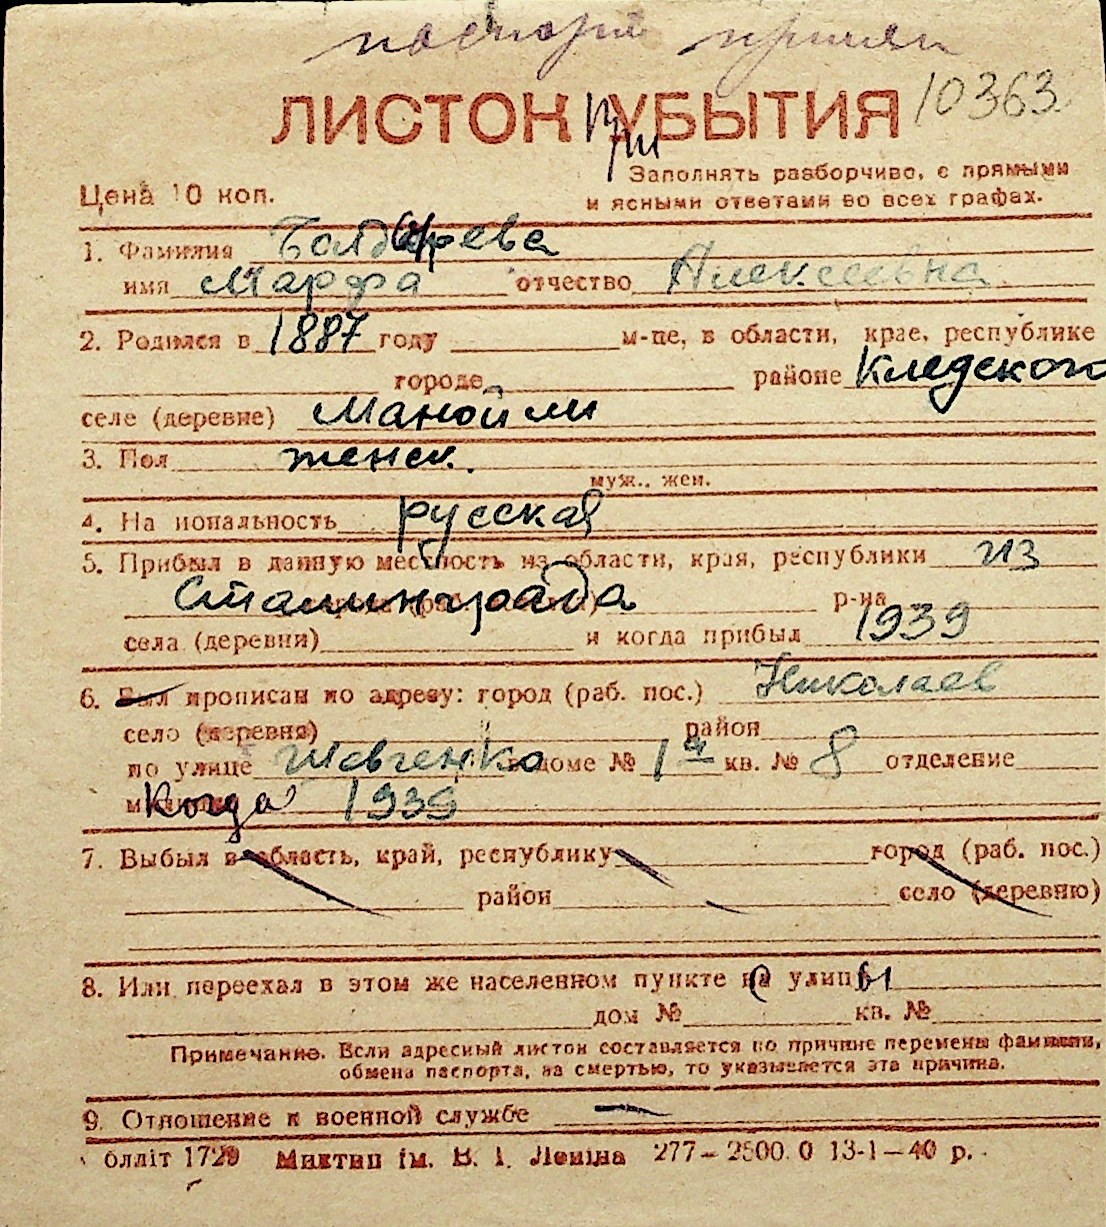 паспорт принял
ЛИСТОК При УБЫТИЯ 10363
Заполнять разборчиво, с прямыми
Цена 10 коп. и ясными ответами во всех графах.
1. Фамилия Болдырева
имя Марфа отчество Алексеевна
2. Родился в 1887 году м-це, в области, крае, республике
городе районе Кледского
селе (деревне) Манойли
3. Пол женск.
муж., жен.
4. На иональность русская
5. Прибыл в данную местность из области, края, республики из
Сталинграда р-на
села (деревни) и когда прибыл 1939
6. Был прописан по адресу: город (раб. пос.) Николаев
село (деревня) район
по улице Шевченко в доме № 1а кв. № 8 отделение
Когда 1939
7. Выбыл в область, край, республику город (раб. пос.)
район село (деревню)
8. Или переехал в этом же населенном пункте с улицы
дом № кв. №
Примечание. Если адресный листок составляется по причине перемены фамилии,
обмена паспорта, за смертью, то указывается эта причина.
9. Отношение к военной службе —
блліт 1729 Миктип ім. В. І. Леніна 277—2500.0 13-1—40 р.